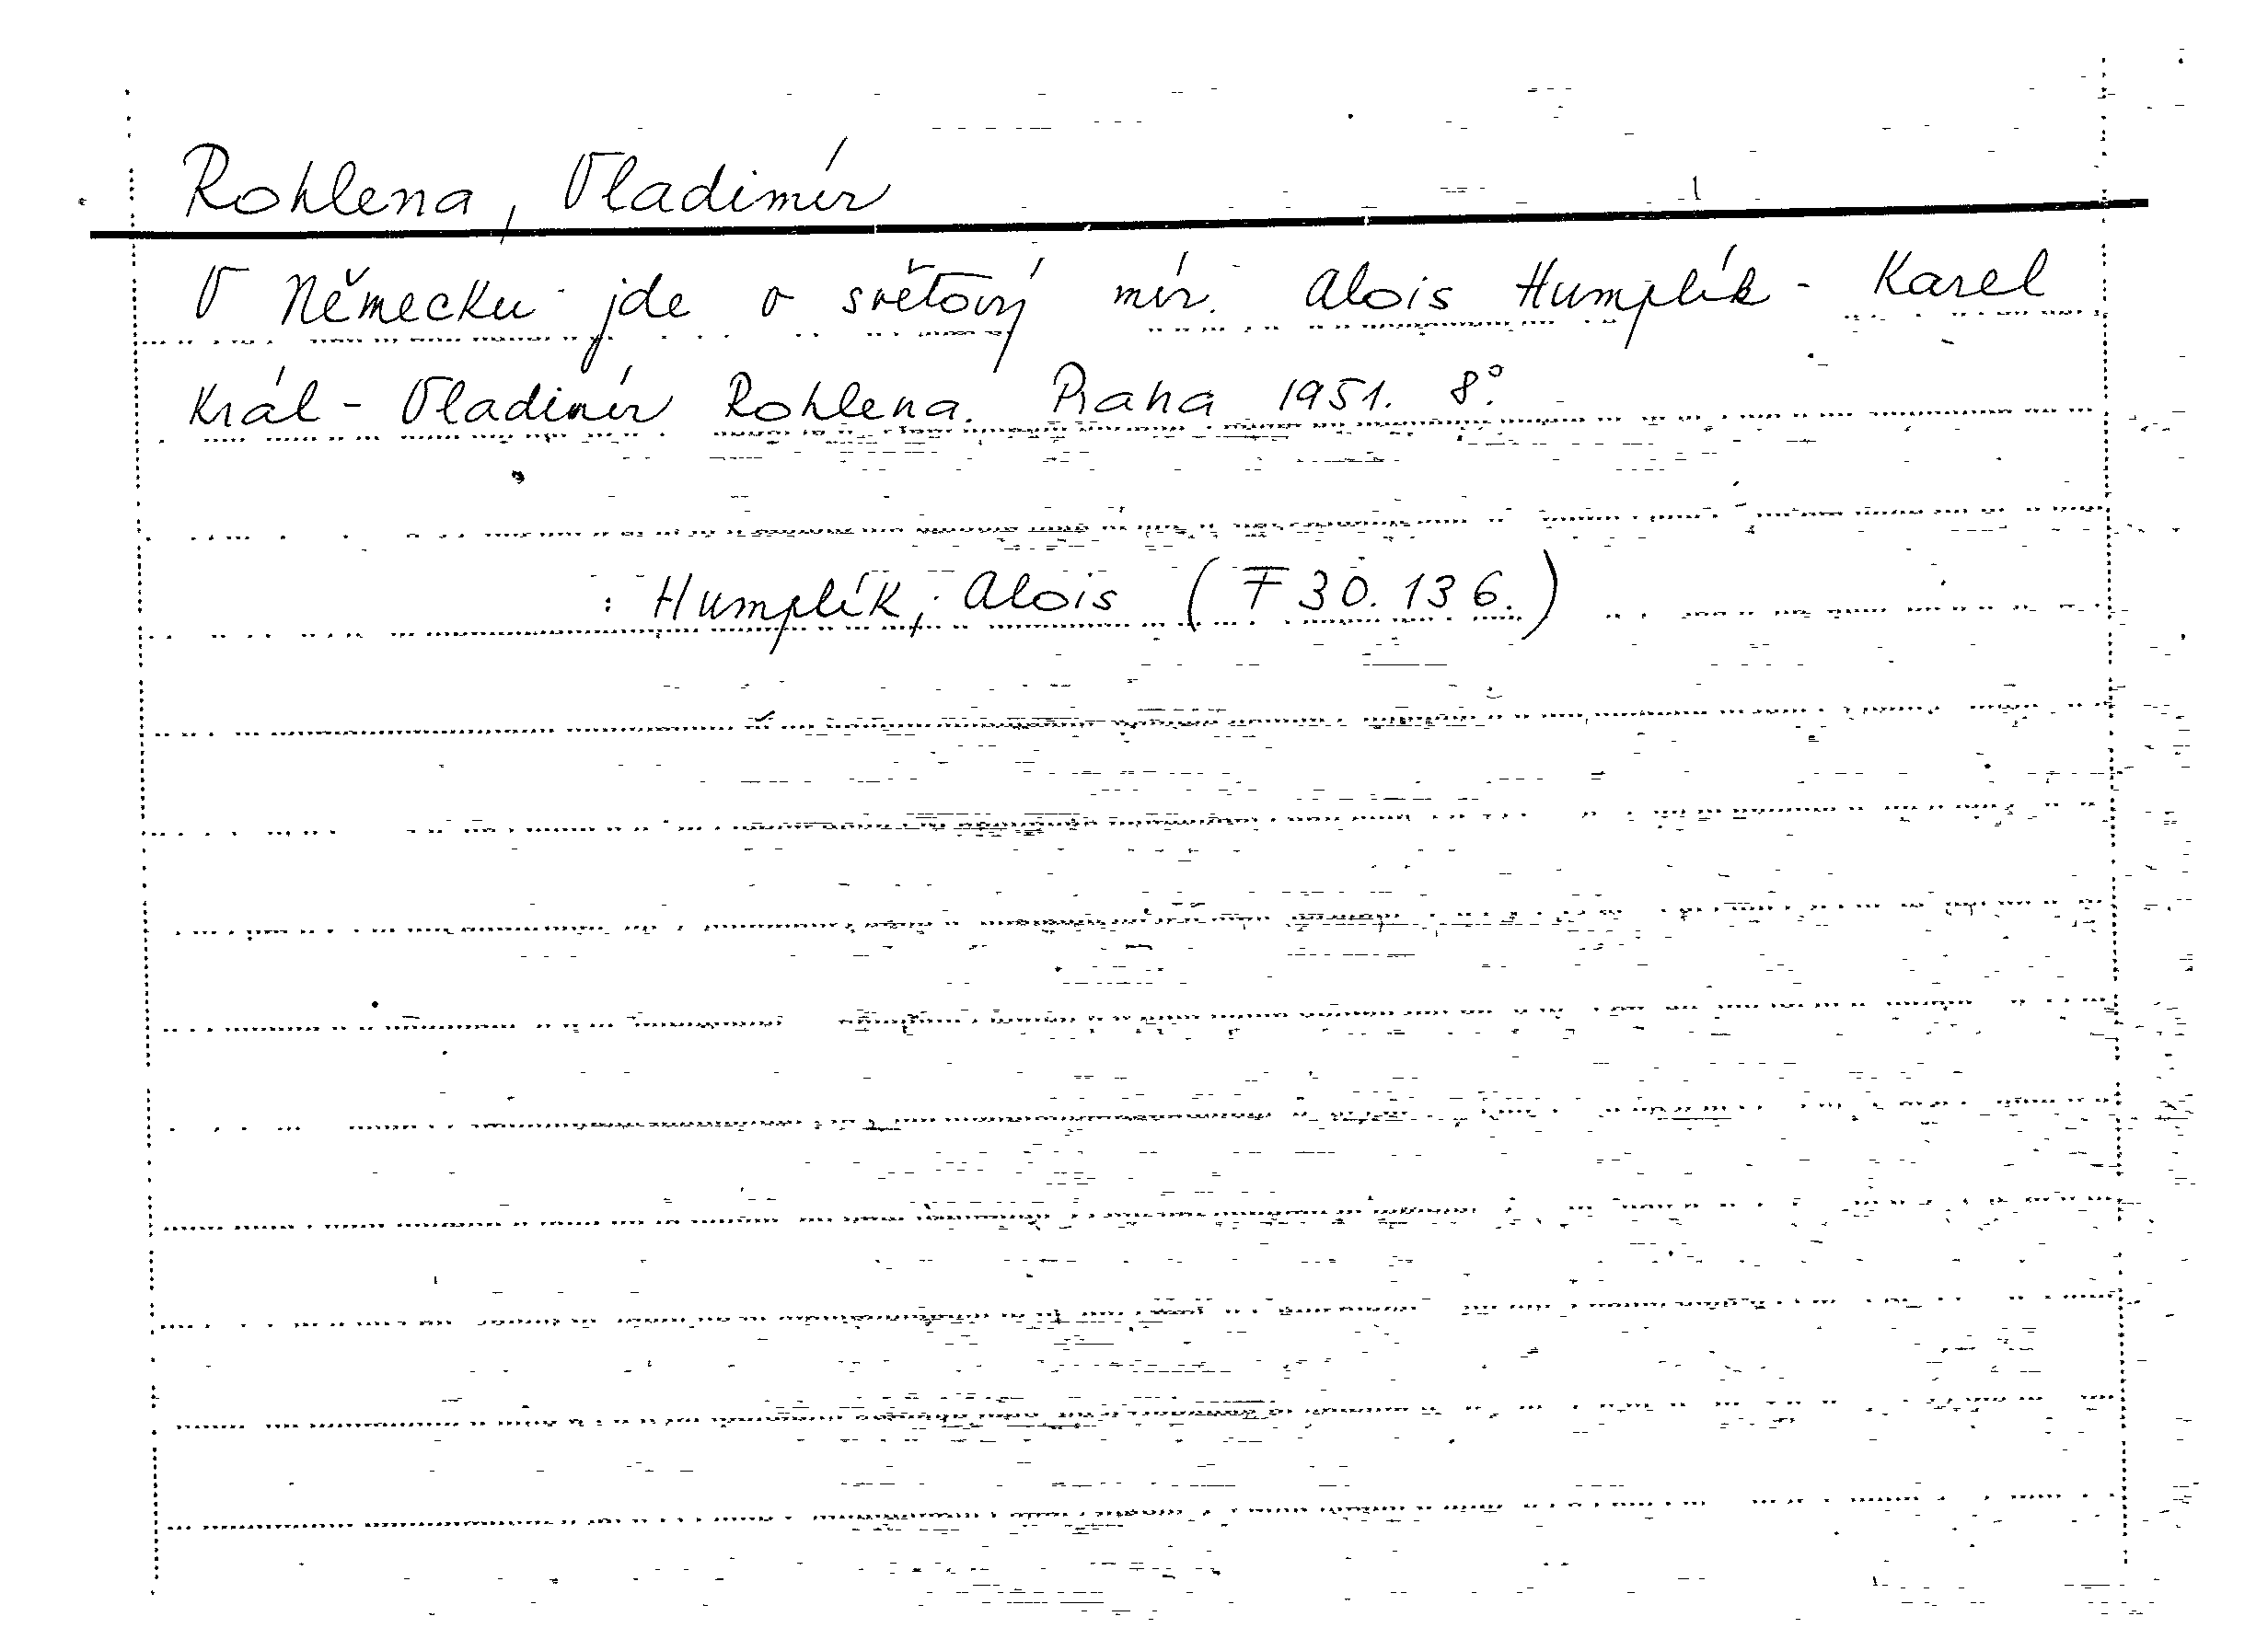 Rohlena, Vladimír
V Německu jde o světový mír. Alois Humplík - Karel
Král - Vladimír Rohlena. Praha 1951. 8°.
: Humplík, Alois (F 30.136.)